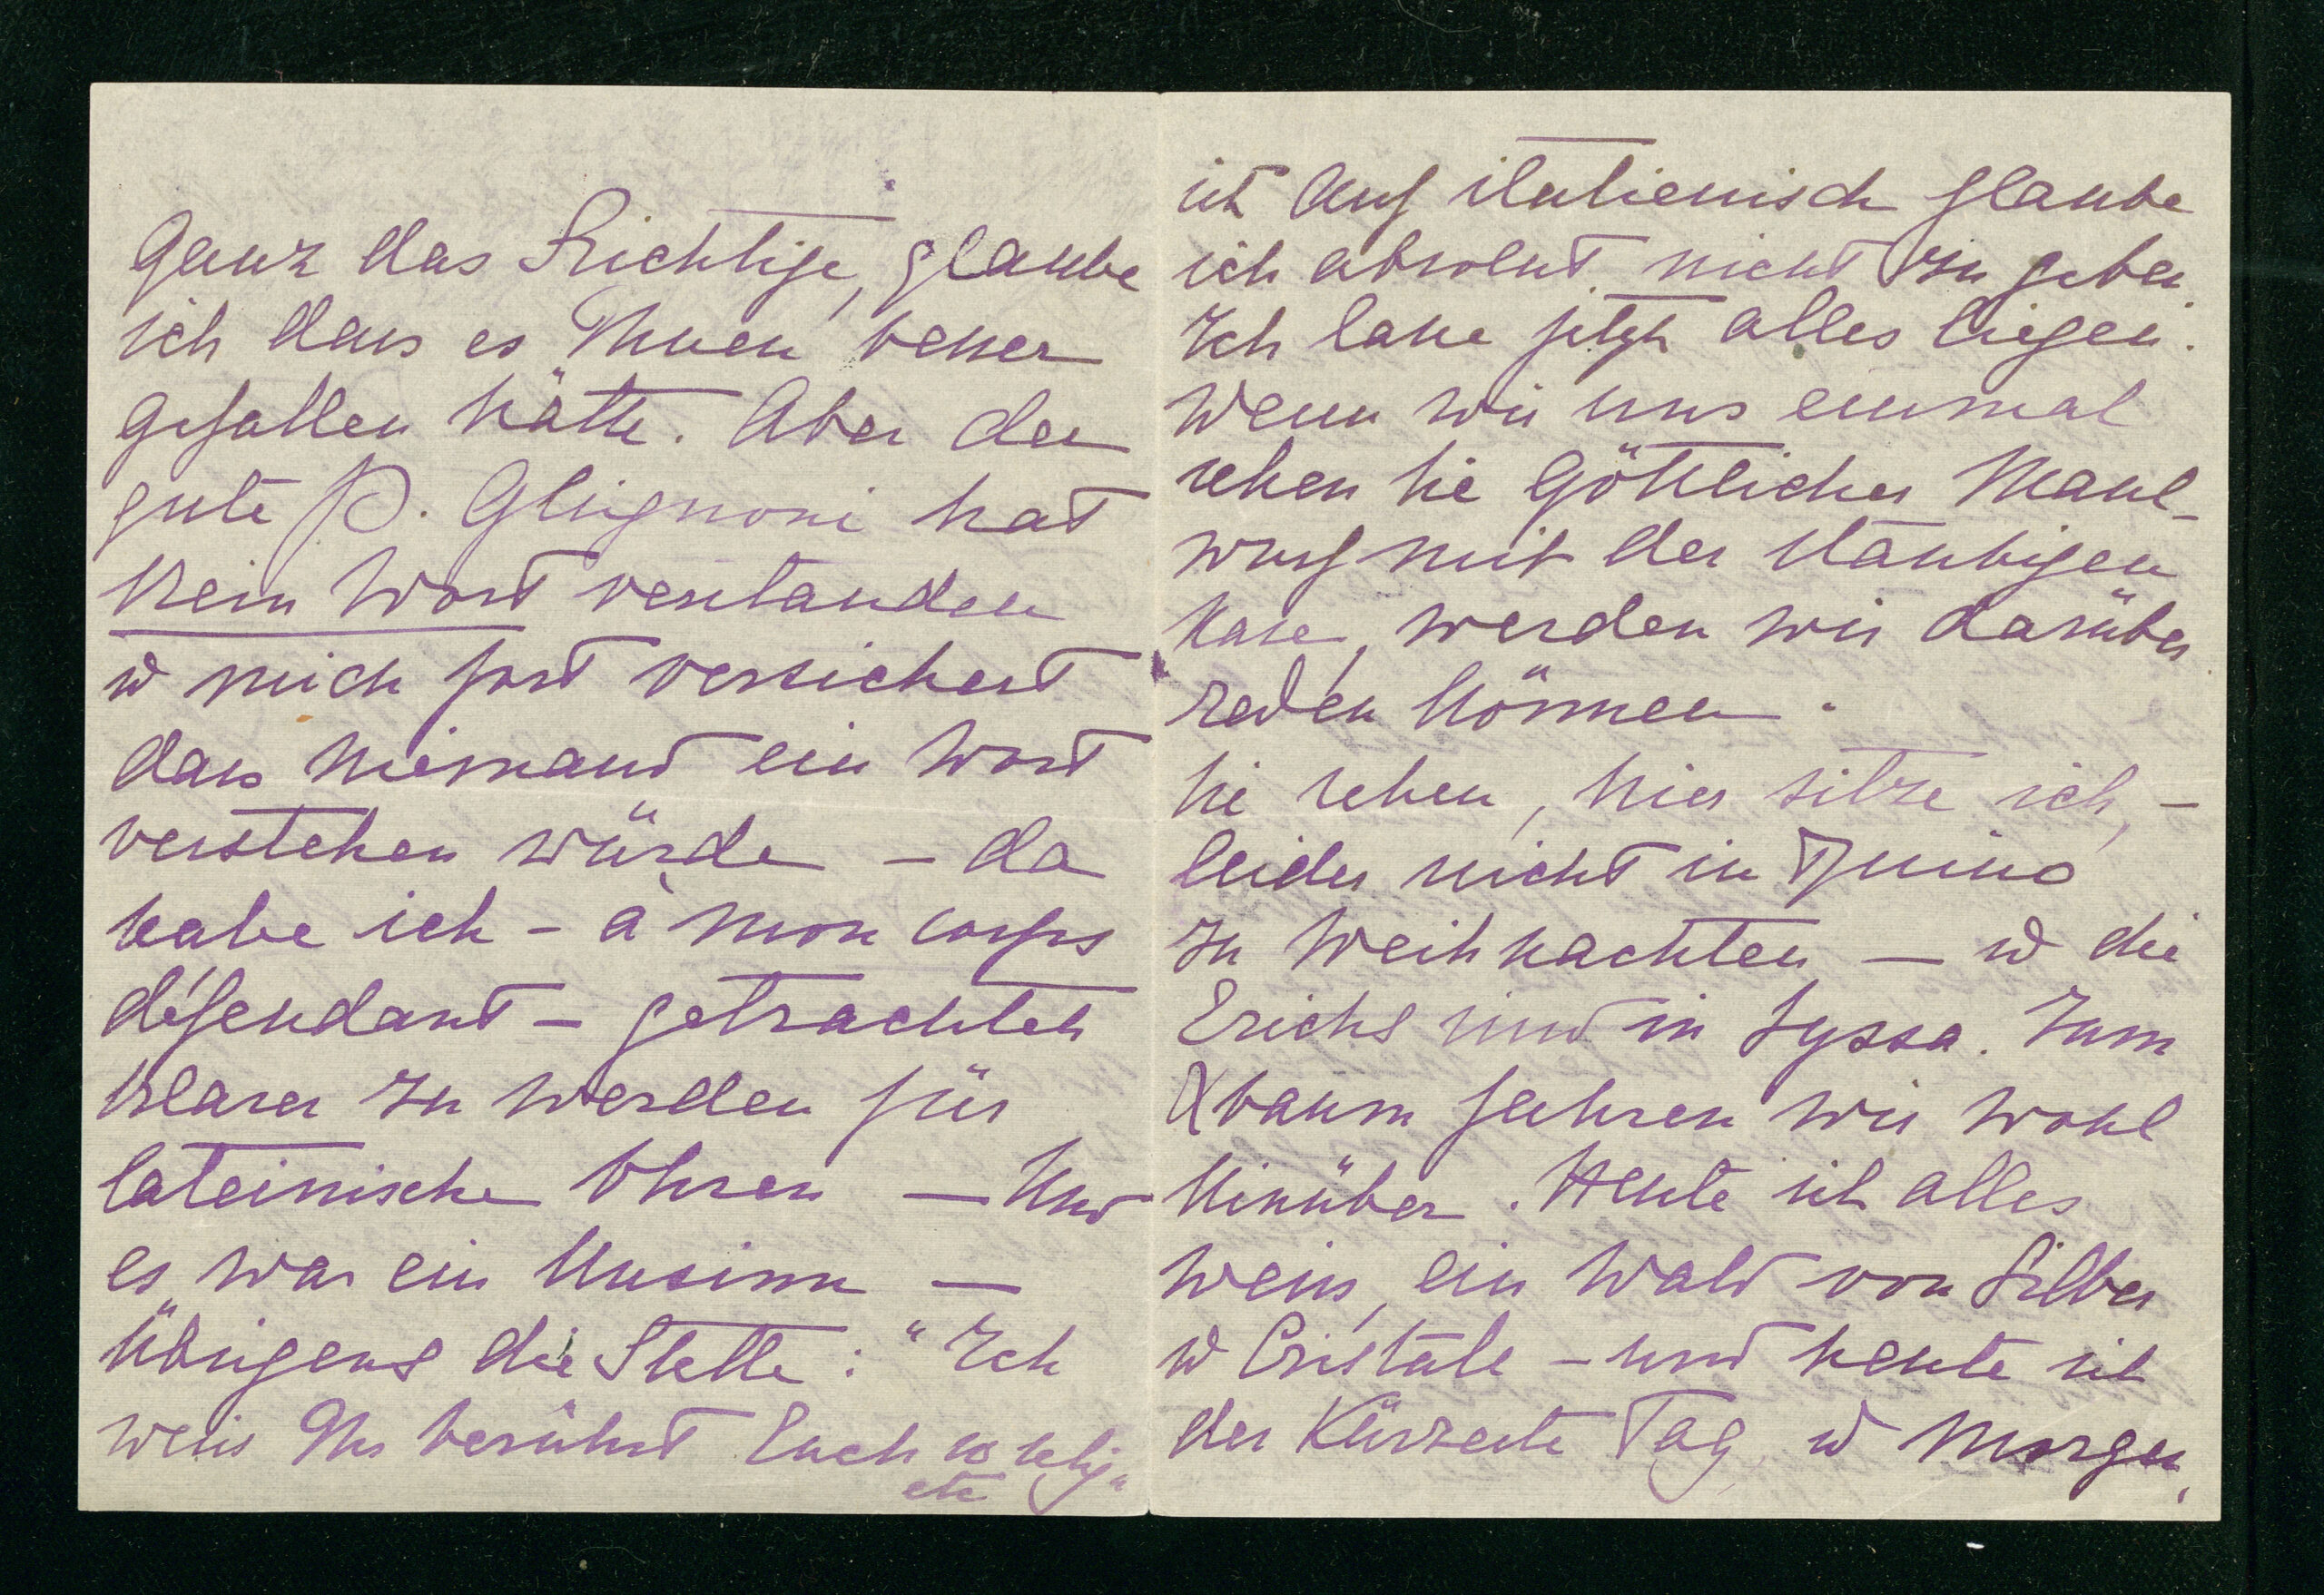 Ganz das Richtige, glaube
ich dass es Ihnen besser
gefallen hätte. Aber der
gute P. Ghignoni hat
kein Wort verstanden
u mich fort versichert
dass niemand ein Wort
verstehen würde – da
habe ich – à mon corps
défendant – getrachtet
klarer zu werden für
lateinische Ohren – Und
es war ein Unsinn –
Übrigens die Stelle: "Ich
weiss Ihr berührt Euch so selig"
etc
ist auf italienisch glaube
ich absolut nicht zu geben.
Ich lasse jetzt alles liegen.
Wenn wir uns einmal
sehen Sie göttlicher Maul-
wurf mit der staubigen
Nase, werden wir darüber
reden können.
Sie sehen, hier sitze ich, –
leider nicht in Duino
zu Weihnachten – u die
Erichs sind in Lyssa. Zum
Xbaum fahren wir wohl
hinüber. Heute ist alles
weiss, ein Wald von Silber
u Cristall – und heute ist
der kürzeste Tag, u Morgen,